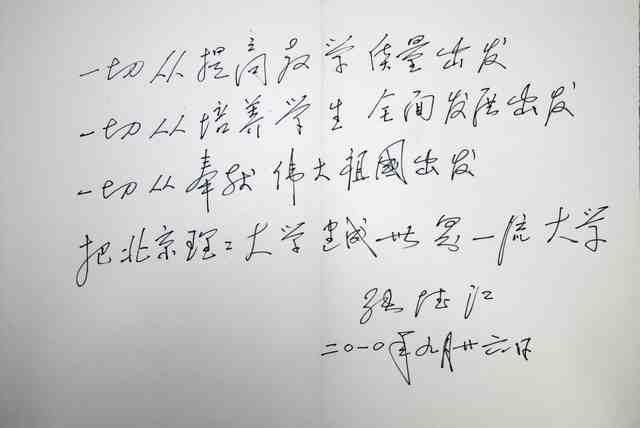 一切从提高教学质量出发
一切从培养学生全面发展出发
一切从奉献伟大祖國出发
把北京理工大学建成世界一流大学
二〇一〇年九月廿六日